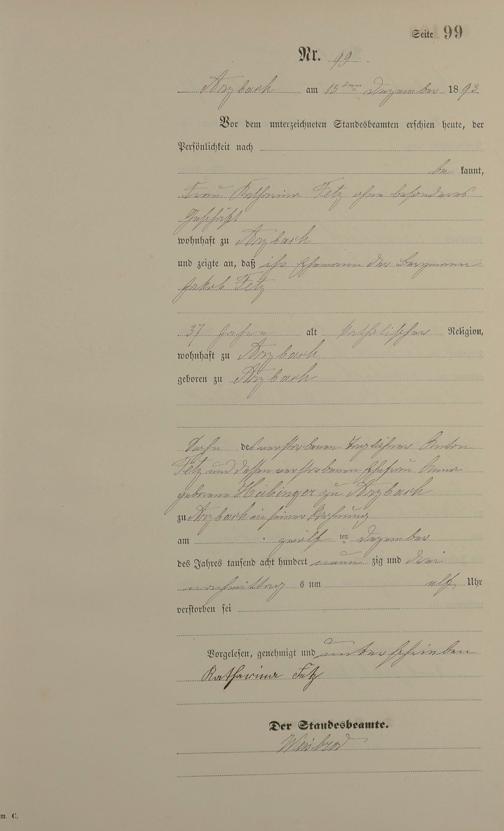 Seite 99
Nr. 99.
Arzbach am 13ten Dezember 1893
Vor dem unterzeichneten Standesbeamten erschien heute, der
Persönlichkeit nach
be kannt,
Frau Katharina Fetz ohne besonderes
Geschäft
wohnhaft zu Arzbach
und zeigte an, daß ihr Ehemann der Bergmann
Jakob Fetz
37 Jahre alt katholischer Religion,
wohnhaft zu Arzbach
geboren zu Arzbach
Sohn des verstorbenen Taglöhners Anton
Fetz und dessen verstorbenen Ehefrau Anna
geborene Heibinger zu Arzbach
zu Arzbach in seiner Wohnung
am zwölf ten Dezember
des Jahres tausend acht hundert neun zig und drei
nachmittag s um elf Uhr
verstorben sei
Vorgelesen, genehmigt und unterschrieben
Katharina Fetz
Der Standesbeamte.
m. C.